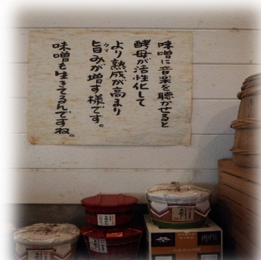 味噌に音楽を聴かせると
酵母が活性化して
より熟成が高まり
旨みが増す様です。
味噌も生きてるんですね。